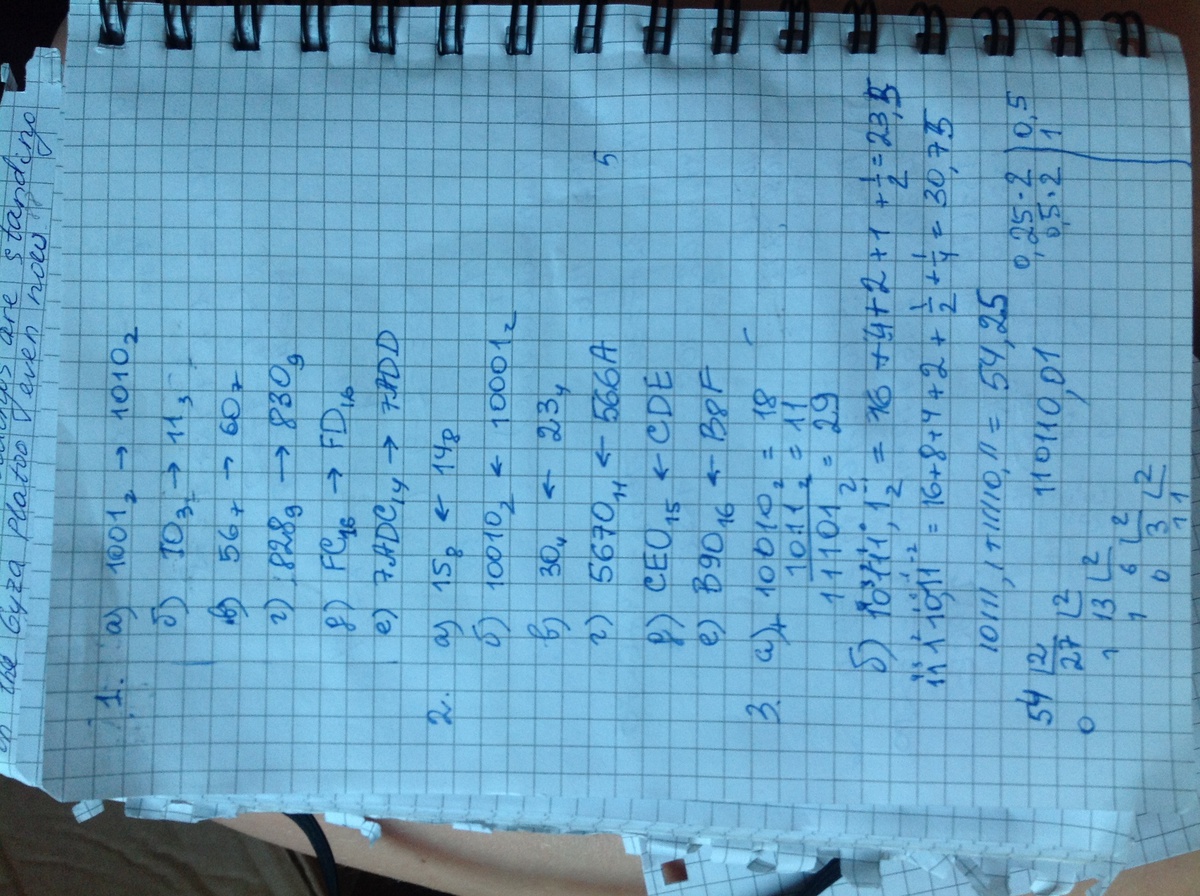 on the Gyza Platoo even now
are standing
1. а) 1001₂ → 1010₂
б) 10₃ → 11₃
в) 56₇ → 60₇
г) 828₉ → 830₉
д) FC₁₆ → FD₁₆
е) 7ADC₁₄ → 7ADD
2. а) 15₈ ← 14₈
б) 10010₂ ← 10001₂
в) 30₄ ← 23₄
г) 5670₁₁ ← 566A
5
д) CE0₁₅ ← CDE
е) B90₁₆ ← B8F
3. а) + 10010₂ = 18
1011₂ = 11
11101₂ = 29
б) 10111,1₂ = 16 + 4 + 2 + 1 + 1/2 = 23,5
11110,11₂ = 16+8+4+2 + 1/2 + 1/4 = 30,75
10111,1+11110,11 = 54,25
54 2 110110,01 0,25·2 0,5
0 27 2 0,5·2 1
1 13 2
1 6 2
0 3 2
1 1